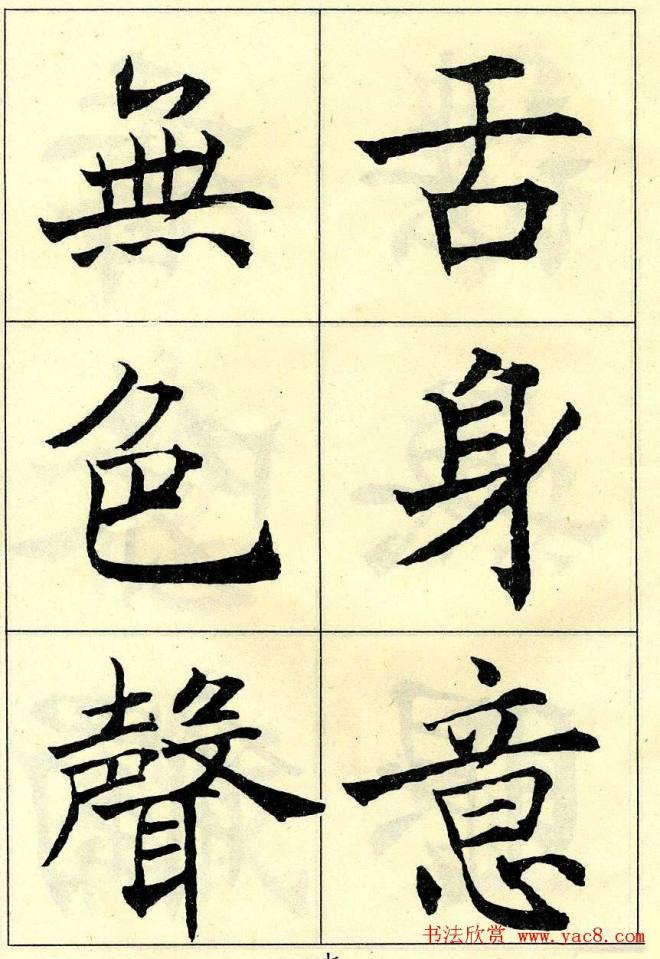 舌身意
無色聲
书法欣赏 www.yac8.com
七